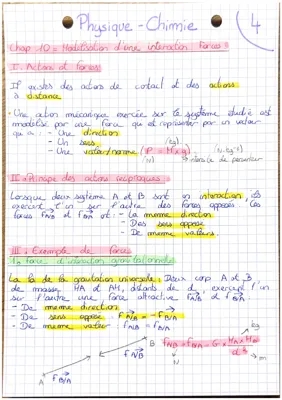 Physique - Chimie
4
Chap 10 = Modélisation d'une interaction. Forces
I - Actions et forces
Il existe des actions de contact et des actions
à distance
Une action mécanique exercée sur le système étudié est
modélisé par une force qui est représenter par un vecteur
qui a : - Une direction
- Un sens
- Une valeur/norme (P = m × g)
(kg)
(N)
(N.kg⁻¹)
intensité de pesanteur
II - Principe des actions réciproques
Lorsque deux système A et B sont en interaction, ils
exercent l'un sur l'autre des forces opposées les
forces F A/B et F B/A ont : - La même direction
- Des sens opposé
- De même valeurs.
III - Exemple de force
1) force d'interaction gravitationnelle
La loi de la gravitation universelle : Deux corps A et B
de masse MA et MB, distants de d, exercent l'un
sur l'autre une force attractive F A/B et F B/A
- De même direction
- De sens opposé : F A/B = - F B/A
- De même valeur : F A/B = F B/A
kg
B
F A/B = F B/A = G × MA × MB
d²
F A/B
N
m
A
F B/A